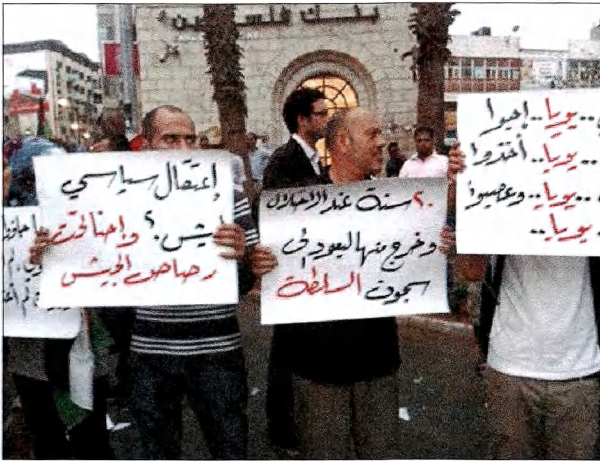 بنك فلسطين
إعتقال سياسي
ليش؟ وإحنا تحت
رصاص الجيش
٢٠ سنة عند الاحتلال
وخرج منها ليعود إلى
سجون السلطة
..يويا..إجوا
..يويا..أخذوا
..يويا..وعصبوا
يويا..